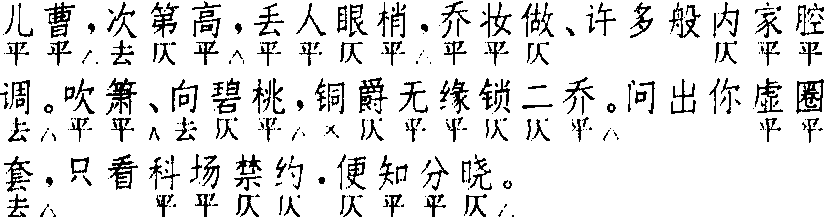 儿曹，次第高，丢人眼梢，乔妆做、许多般内家腔
平平△去仄平△平平仄平△平平仄仄平平
调。吹箫、向碧桃，铜爵无缘锁二乔。问出你虚圈
去△平平△去仄平△×仄平平仄仄平△平平
套，只看科场禁约．便知分晓。
去△平平仄仄仄平平仄△